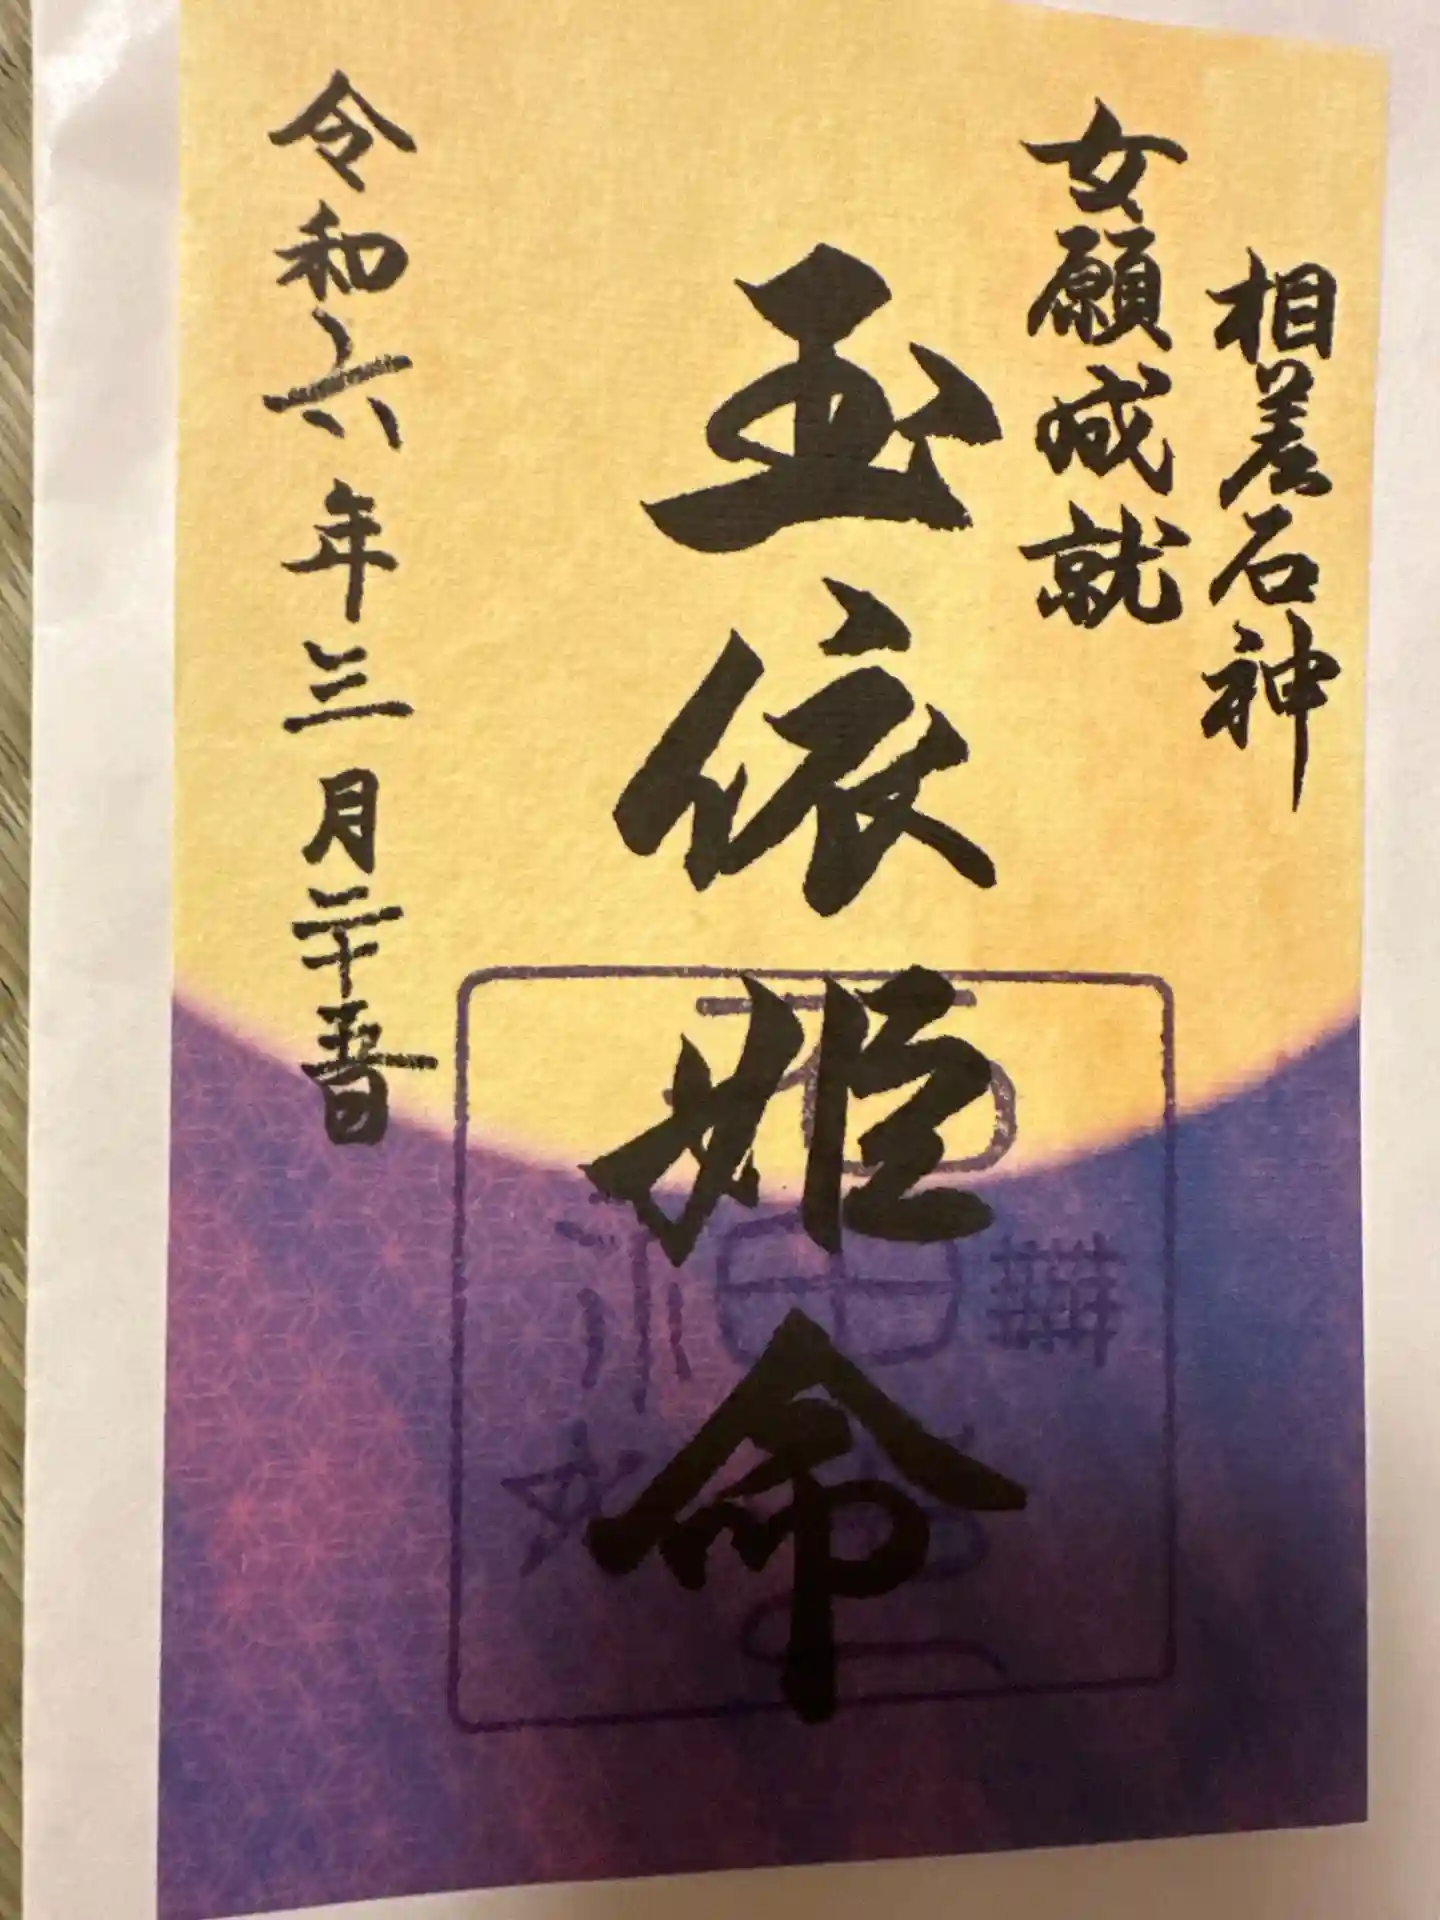 相差石神
女願成就
玉依姫命
令和六年三月二十五日
石
神